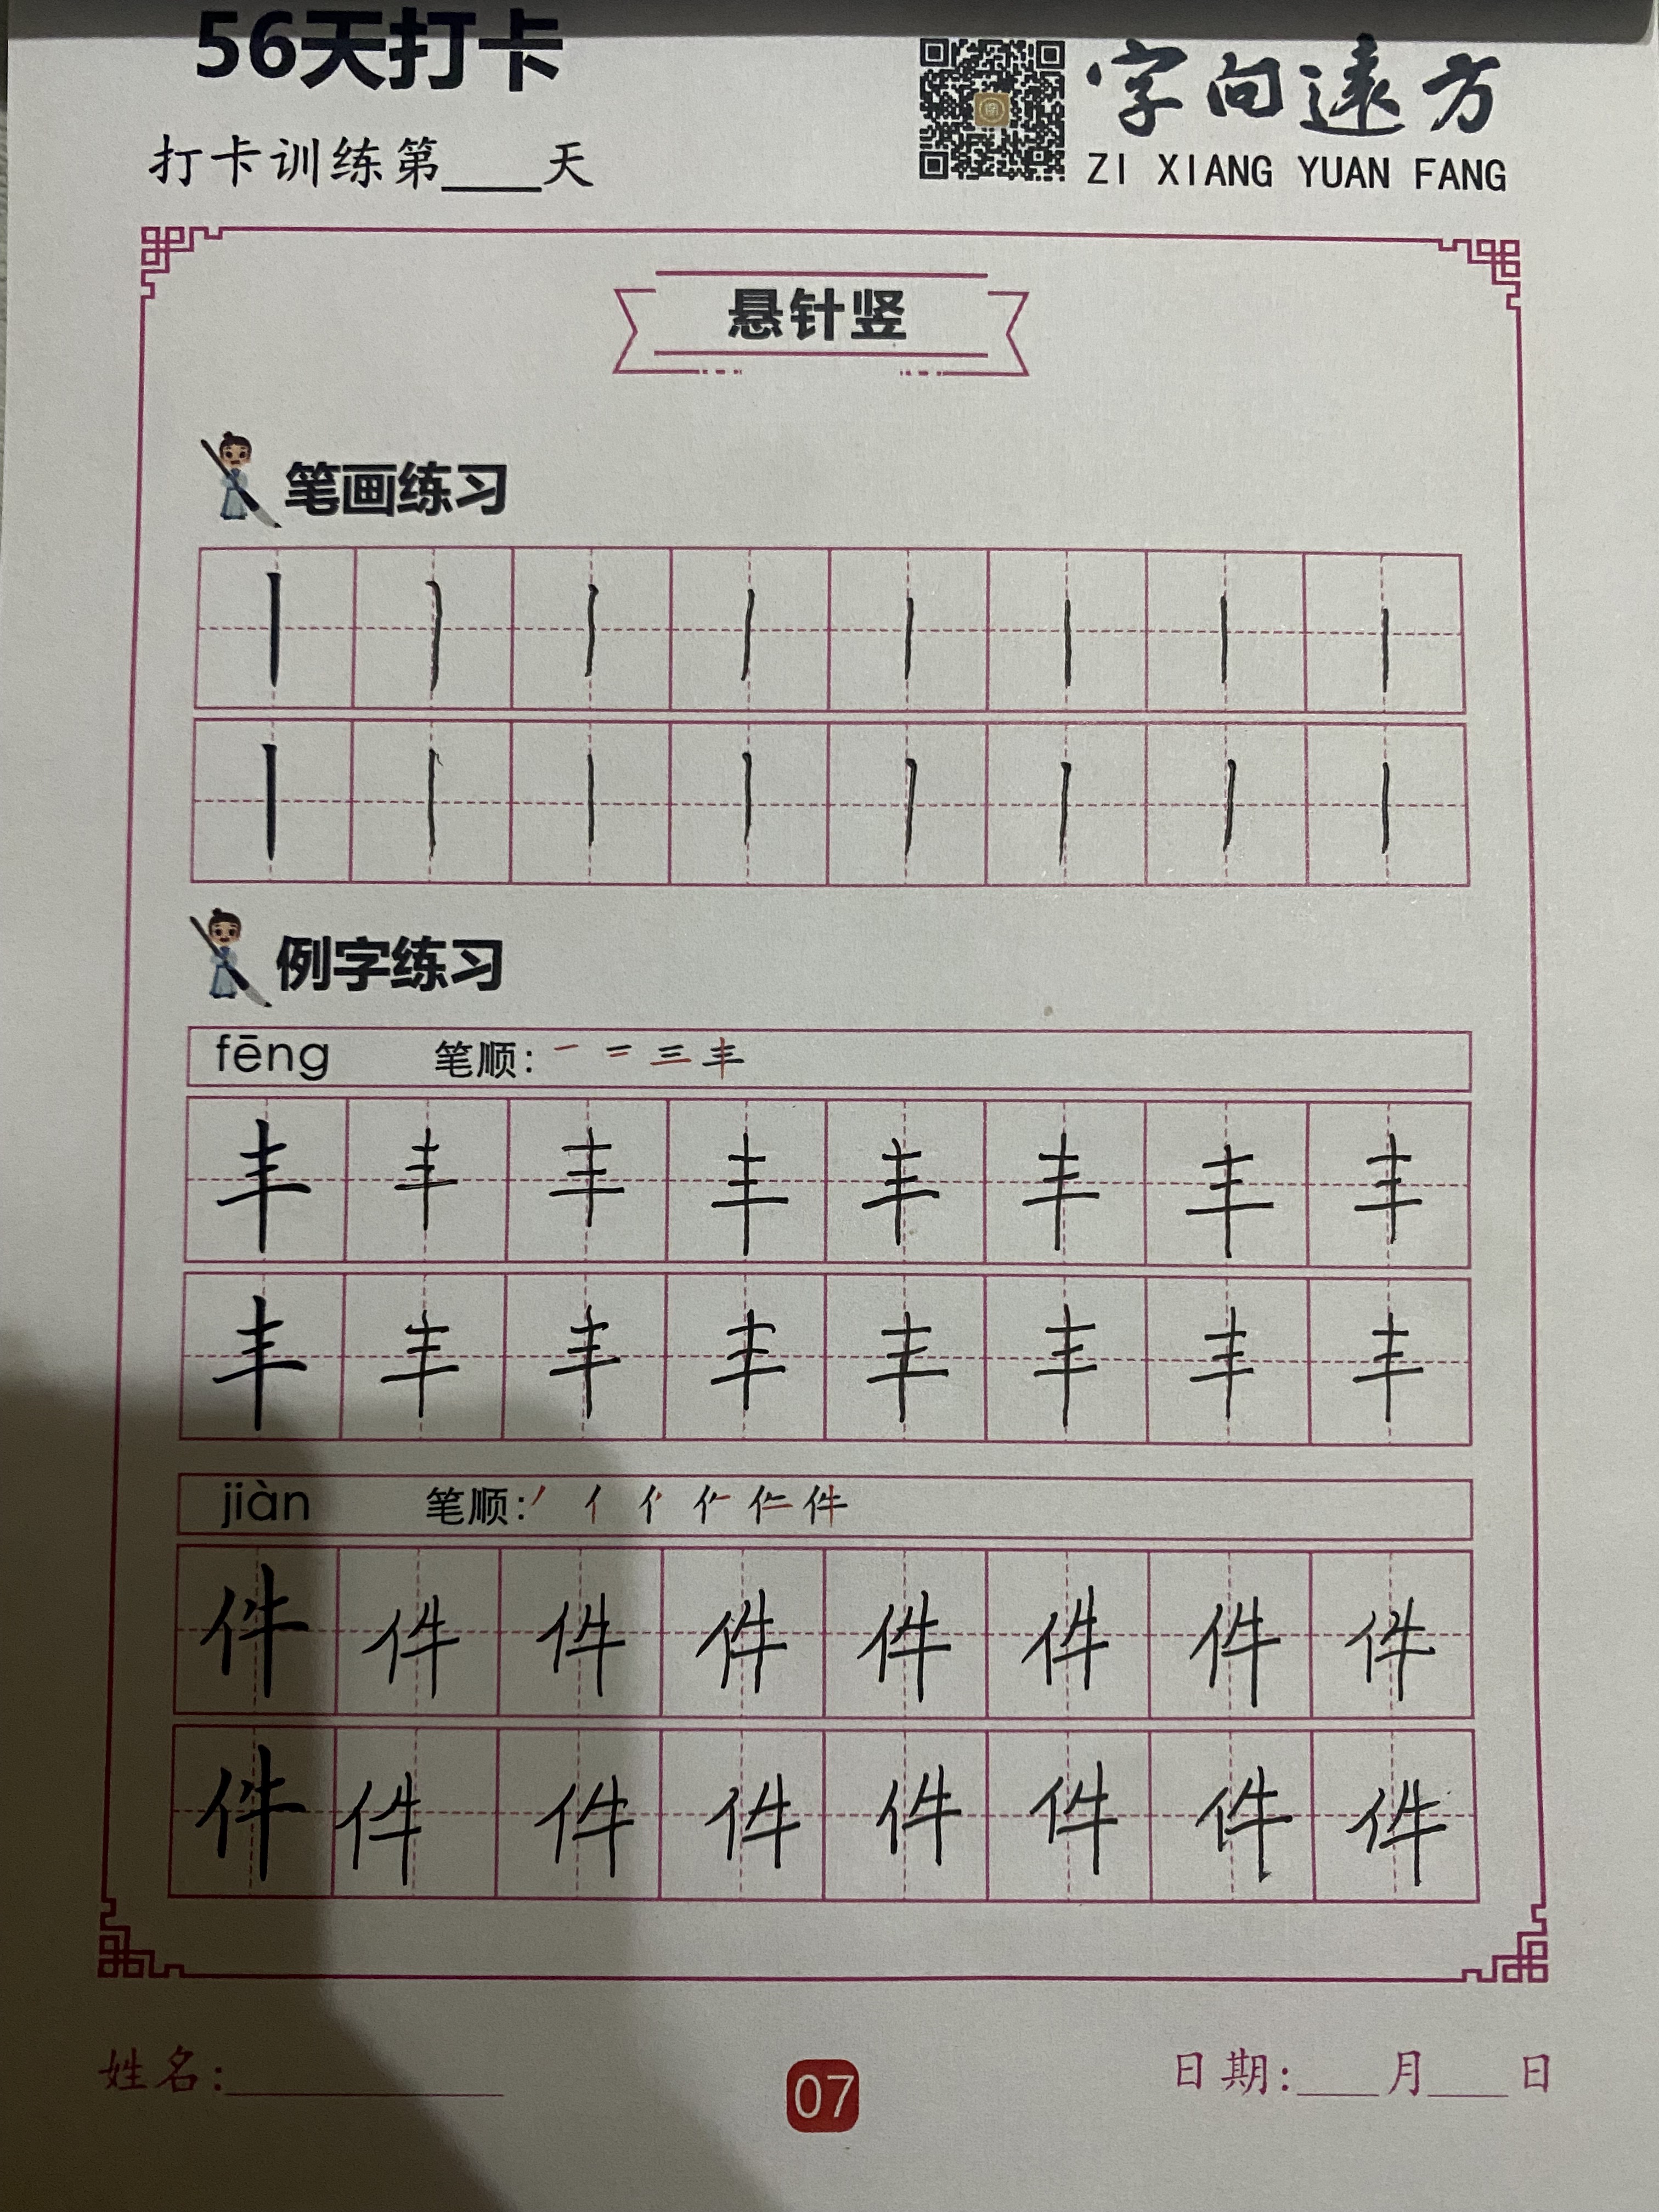 56天打卡
字向遠方
打卡训练第____天
ZI XIANG YUAN FANG
悬针竖
笔画练习
丨 丨 丨 丨 丨 丨 丨 丨
丨 丨 丨 丨 丨 丨 丨 丨
例字练习
fēng 笔顺: 一 二 三 丰
丰 丰 丰 丰 丰 丰 丰 丰
丰 丰 丰 丰 丰 丰 丰 丰
jiàn 笔顺: 丿 亻 件
件 件 件 件 件 件 件 件
件 件 件 件 件 件 件 件
姓名:____________
07
日期:____月____日